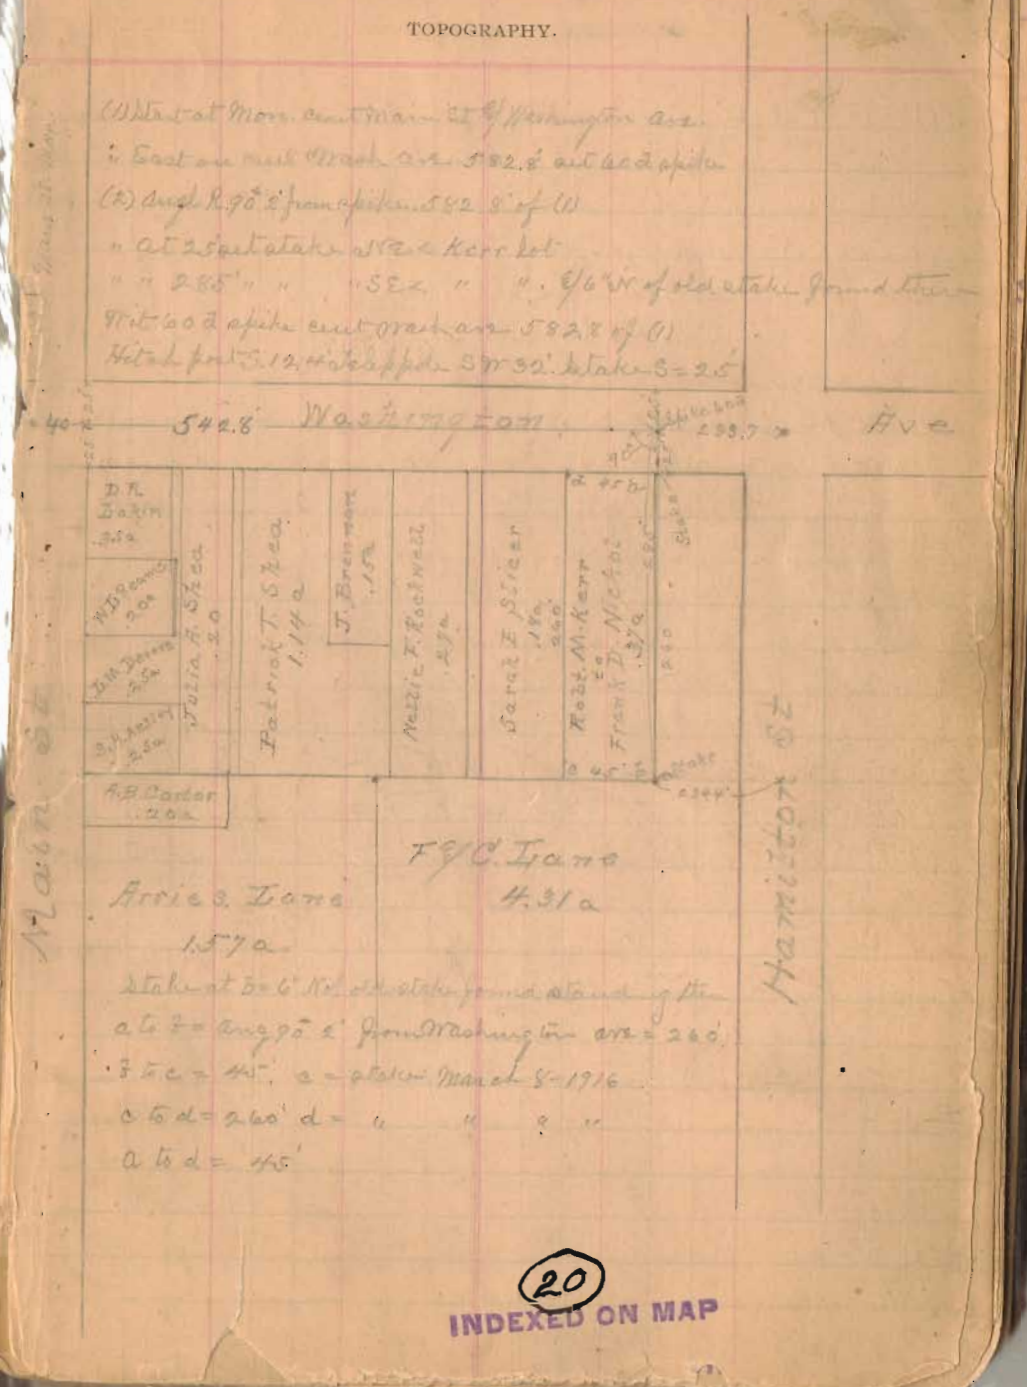 TOPOGRAPHY.
(1) Start at Mon. cent Main St & Washington Ave.
" East on cent Wash ave 582.8' set 60d spike
(2) Angl R. 90° 2' from spike 582.8' of (1)
" At 25' set stake Kerr lot
" " 285' " " " SE< " " . & 6" N of old stake found there
Wit 60d spike cent Wash ave 582.8 of (1)
Hitch post S. 12.4' apple SW 32'. Stake S = 25'
40
542.8'
Washington
Spike
Ave
D.R. Lakin
.25a
.20a
.25a
.25a
Julia A. Shea
.20
Patrick T. Shea
1.14a
J. Brennan
.15a
Nellie F. Rockwell
.27a
Sarah E Slicer
.18a
260'
Robt. M. Kerr
to
Frank D. Nichol
.37a
285'
a 45' b
Stake
260
c 45' b
Stake
Main St
Hamilton St
A.B. Carter
.20a
F & C. Lane
4.31a
Arrie S. Lane
1.57a
Stake at b = 6" N of old stake found standing there
a to b = ang 90° 2' from Washington ave = 260'.
b to c = 45'. c = stake March 8-1916
c to d = 260' d = " " " "
a to d = 45'
20
INDEXED ON MAP